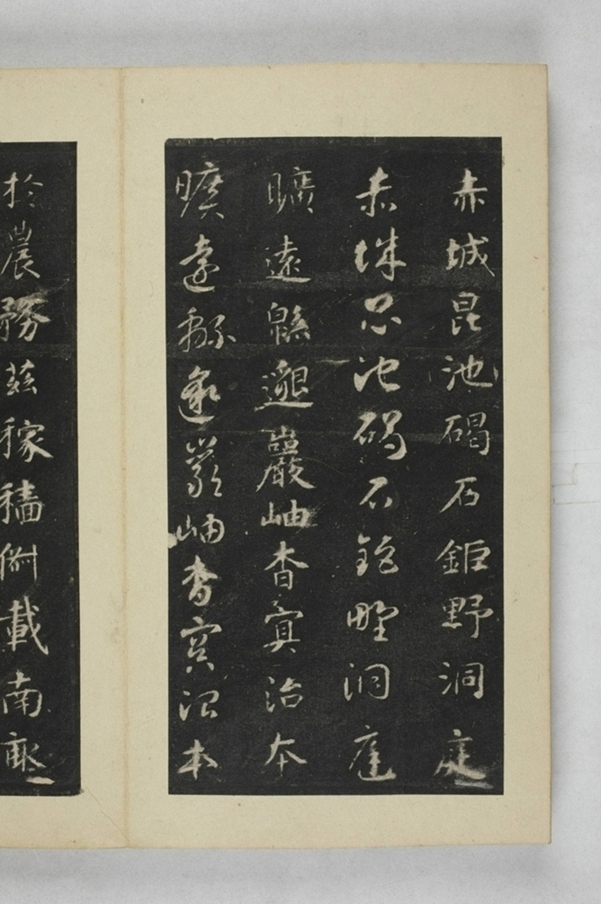 赤城昆池碣石鉅野洞庭
赤城昆池碣石鉅野洞庭
曠遠緜邈巖岫杳冥治本
曠遠緜邈巖岫杳冥治本
於農務茲稼穡俶載南畝